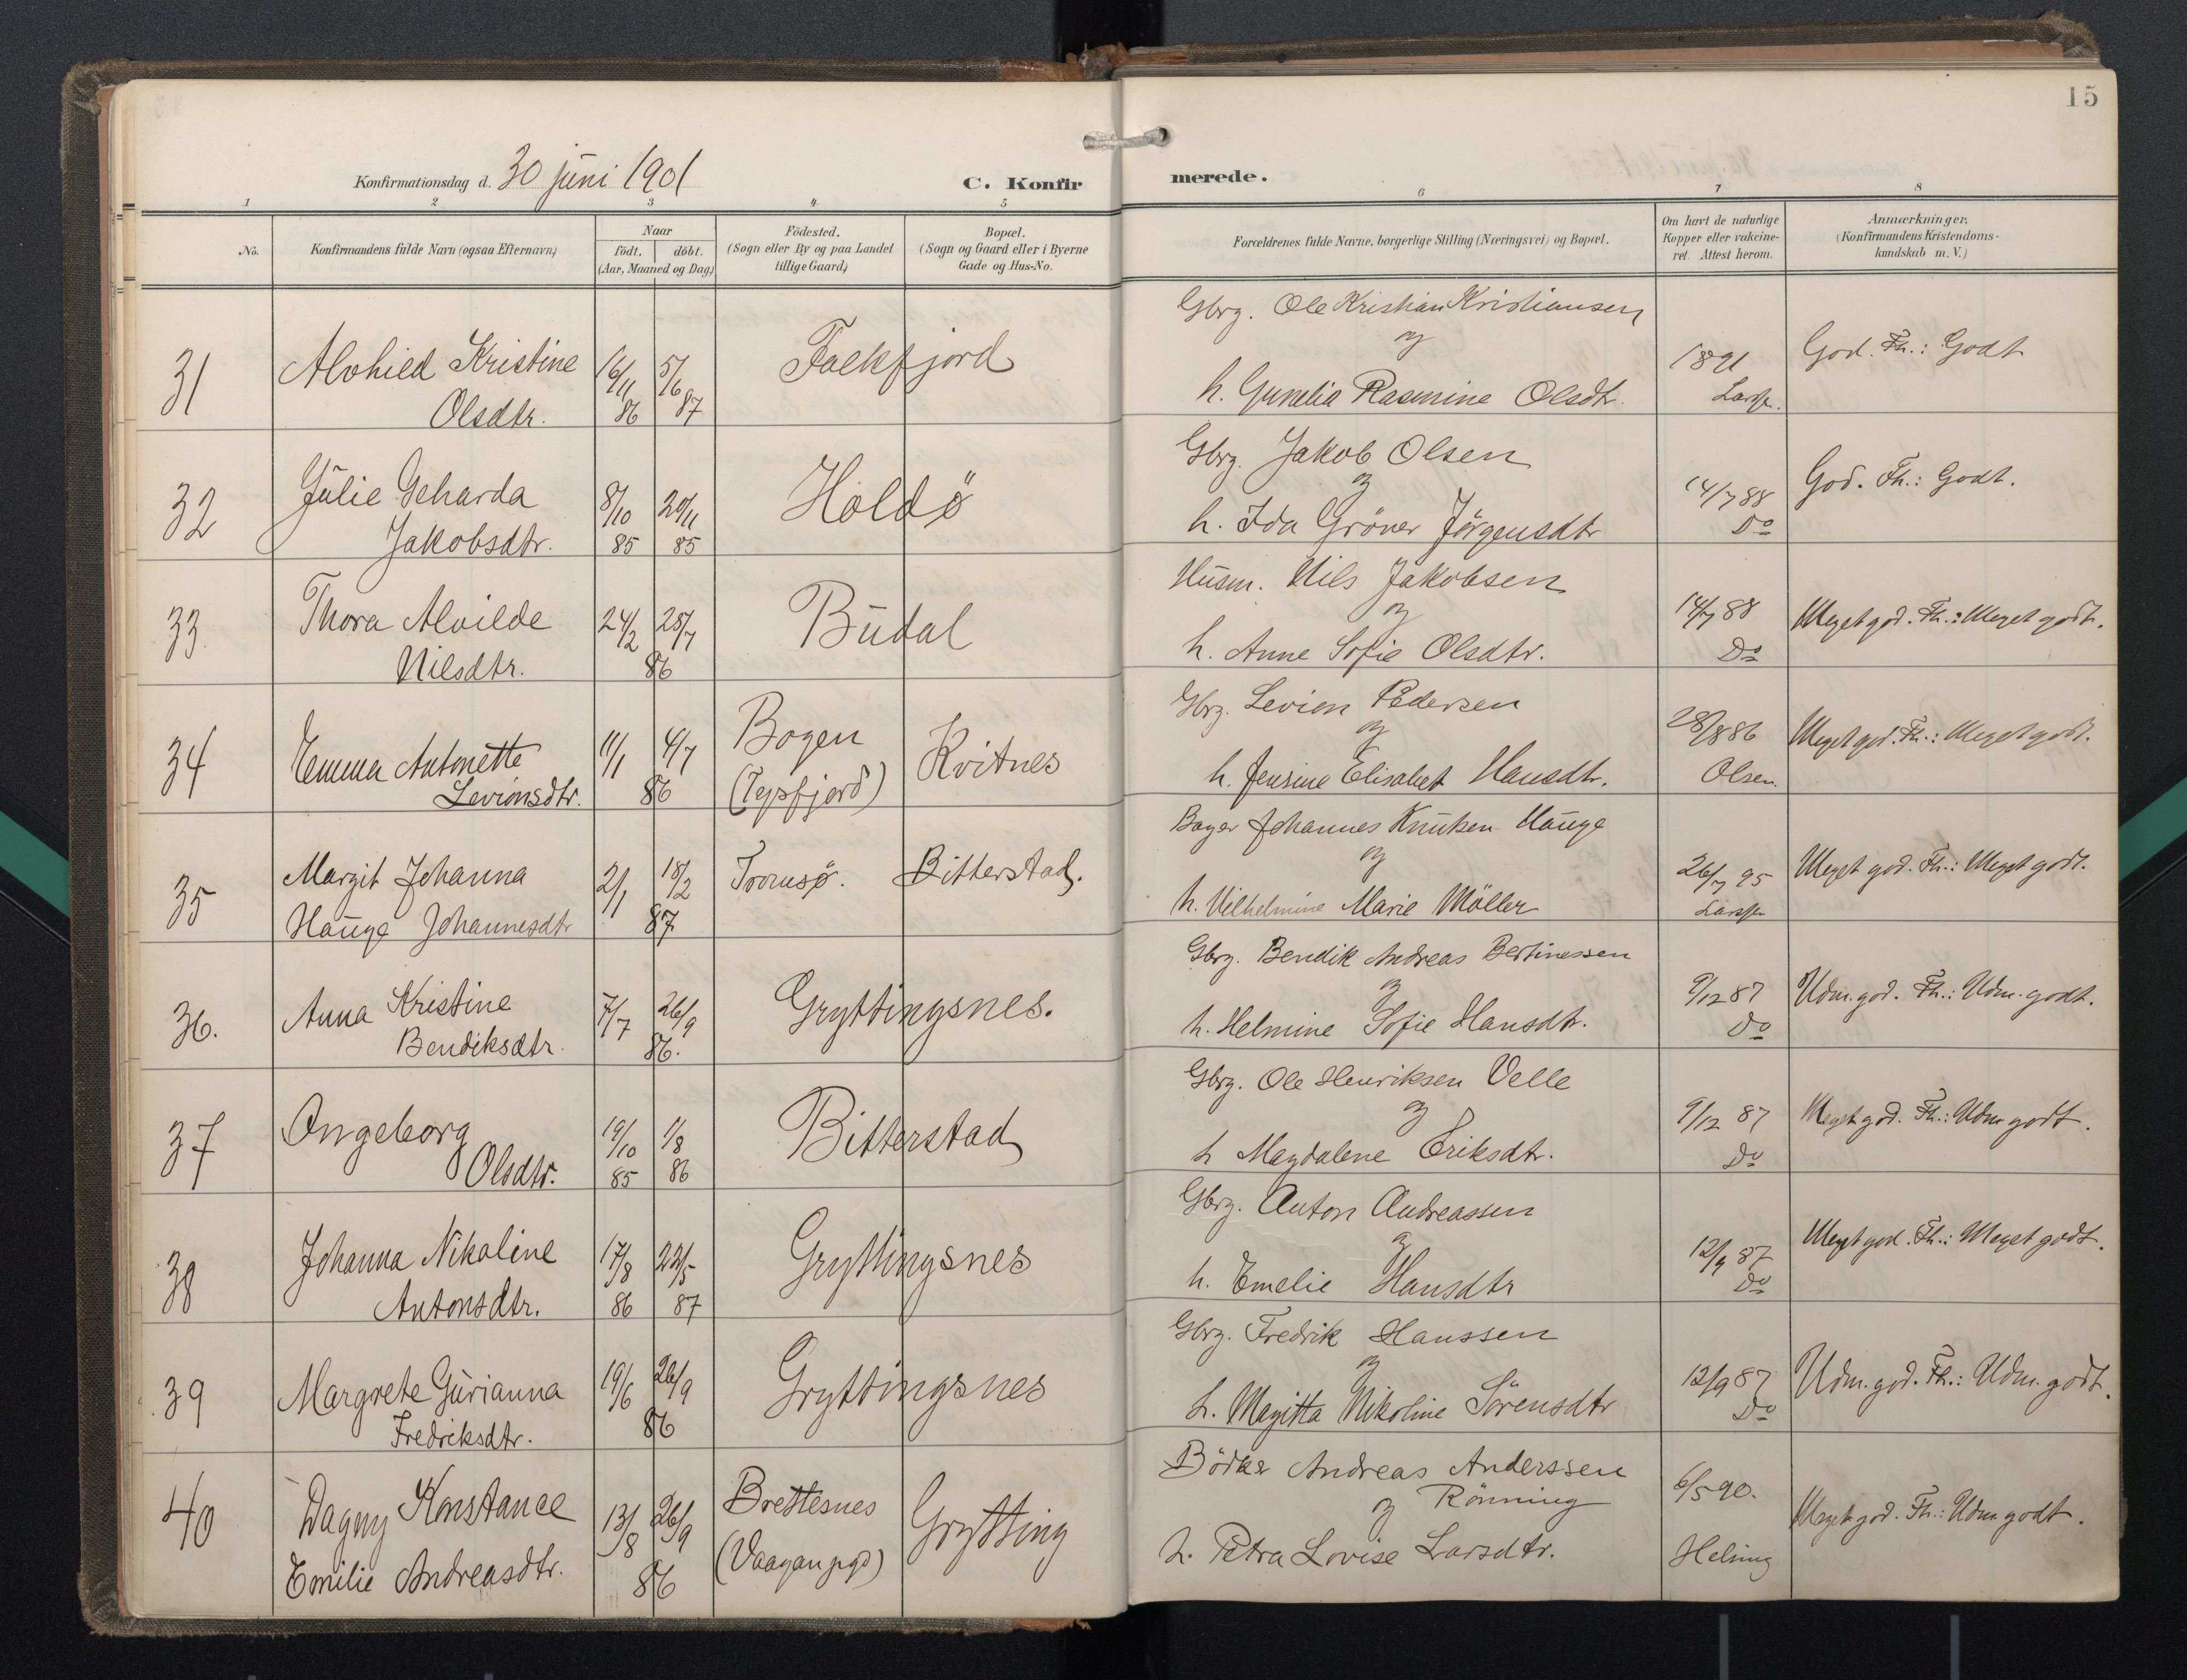 15
Konfirmationsdag d. 30 juni 1901
C. Konfirmerede.
1 2 3 4 5 6 7 8
No.
Konfirmandens fulde Navn (ogsaa Efternavn)
Naar
födt. döbt.
(Aar, Maaned og Dag)
Födested.
(Sogn eller By og paa Landet
tillige Gaard)
Bopæl.
(Sogn og Gaard eller i Byerne
Gade og Hus-No.
Forældrenes fulde Navne, borgerlige Stilling (Næringsvei) og Bopæl.
Om havt de naturlige
Kopper eller vakcine-
ret. Attest herom.
Anmærkninger.
(Konfirmandens Kristendoms-
kundskab m. V.)
31 Alvhild Kristine
Olsdtr.
16/11 86 5/6 87
Falkfjord
Gbrg. Ole Kristian Kristiansen
og
h. Gunelia Rasmine Olsdtr.
1891
God. Fh.: Godt
32 Julie Geharda
Jakobsdtr.
8/10 85 20/11 85
Holdö
Gbrg. Jakob Olsen
og
h. Ida Gröner Jörgensdtr
14/7 88
Do
God. Fh.: Godt.
33. Thora Alvilde
Nilsdtr.
24/2 28/7
86
Budal
Husm. Nils Jakobsen
og
h. Anne Sofie Olsdtr.
14/7 88
Do
Meget god. Fh.: Meget godt.
34 Emma Antonette
Levionsdtr.
11/1 4/7
86
Bogen
(Tysfjord)
Kvitnes
Gbrg. Levion Pedersen
og
h. Jensine Elisabet Hansdtr.
28/8 86
Olsen.
Meget god. Fh.: Meget godt.
35 Margit Johanna
Hauge Johannesdtr
2/1 18/2
87
Tromsø.
Bitterstad.
Bager Johannes Knutsen Hauge
og
h. Vilhelmine Marie Möller
26/7 95
Meget god. Fh.: Meget godt.
36. Anna Kristine
Bendiksdtr.
7/7 26/9
86.
Gryttingsnes.
Gbrg. Bendik Andreas Bertinessen
og
h. Helmine Sofie Hansdtr.
9/12 87
Do
Udm. god. Fh.: Udm. godt.
37 Ongeborg
Olsdtr.
19/10 85 1/8 86
Bitterstad
Gbrg. Ole Henriksen Velle
og
h Magdalene Eriksdtr.
9/12 87
Do
Meget god. Fh.: Udm godt.
38 Johanna Nikoline
Antonsdtr.
17/8 86 22/5 87
Gryttingsnes
Gbrg. Anton Andreassen
og
h. Emelie Hansdtr
12/9 87
Do
Meget god. Fh.: Meget godt.
39 Margrete Gurianna
Fredriksdtr.
19/6 26/9
86
Gryttingsnes
Gbrg. Fredrik Hanssen
og
h. Magitta Nikoline Sörensdtr
12/9 87
Do
Udm. god. Fh.: Udm. godt.
40 Dagny Konstance
Emilie Andreasdtr.
13/8 26/9
86
Brettesnes
(Vaagan pgd)
Grytting
Bödker Andreas Anderssen
og Rönning
h. Petra Lovise Larsdtr.
6/5 90.
Helsing
Meget god. Fh.: Udm godt.